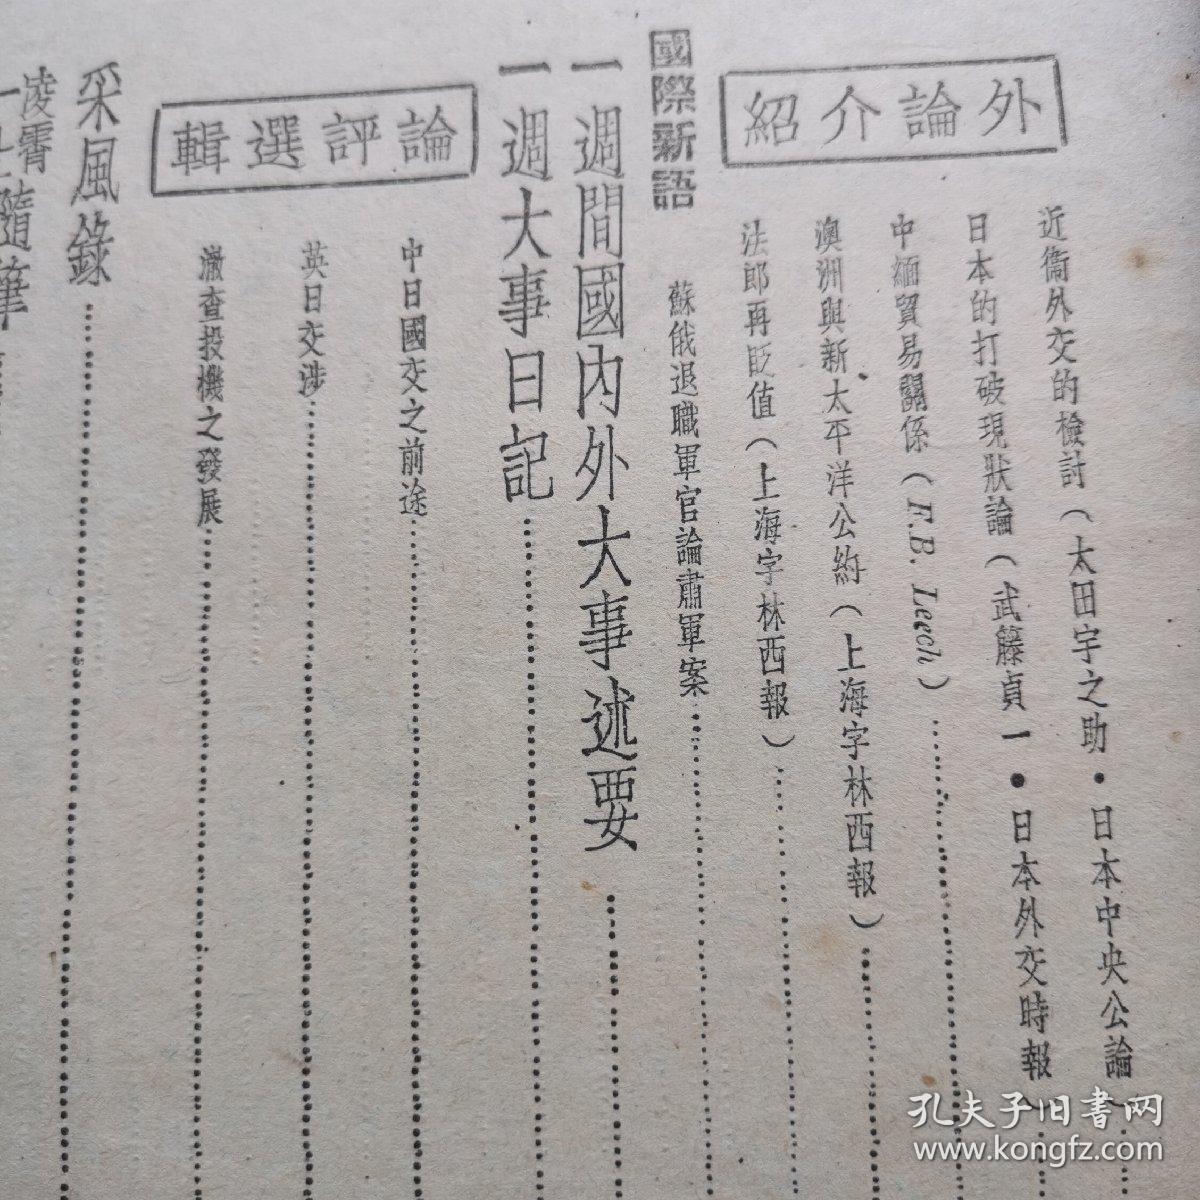 外論介紹
近衞外交的檢討（太田宇之助・日本中央公論）
日本的打破現狀論（武籐貞一・日本外交時報）
中緬貿易關係（F.B. Leech）
澳洲與新太平洋公約（上海字林西報）
法郎再貶值（上海字林西報）
國際新語
蘇俄退職軍官論肅軍案
一週間國內外大事述要
一週大事日記
論評選輯
中日國交之前途
英日交涉
澈查投機之發展
采風錄
凌霄一士隨筆
孔夫子旧书网
www.kongfz.com